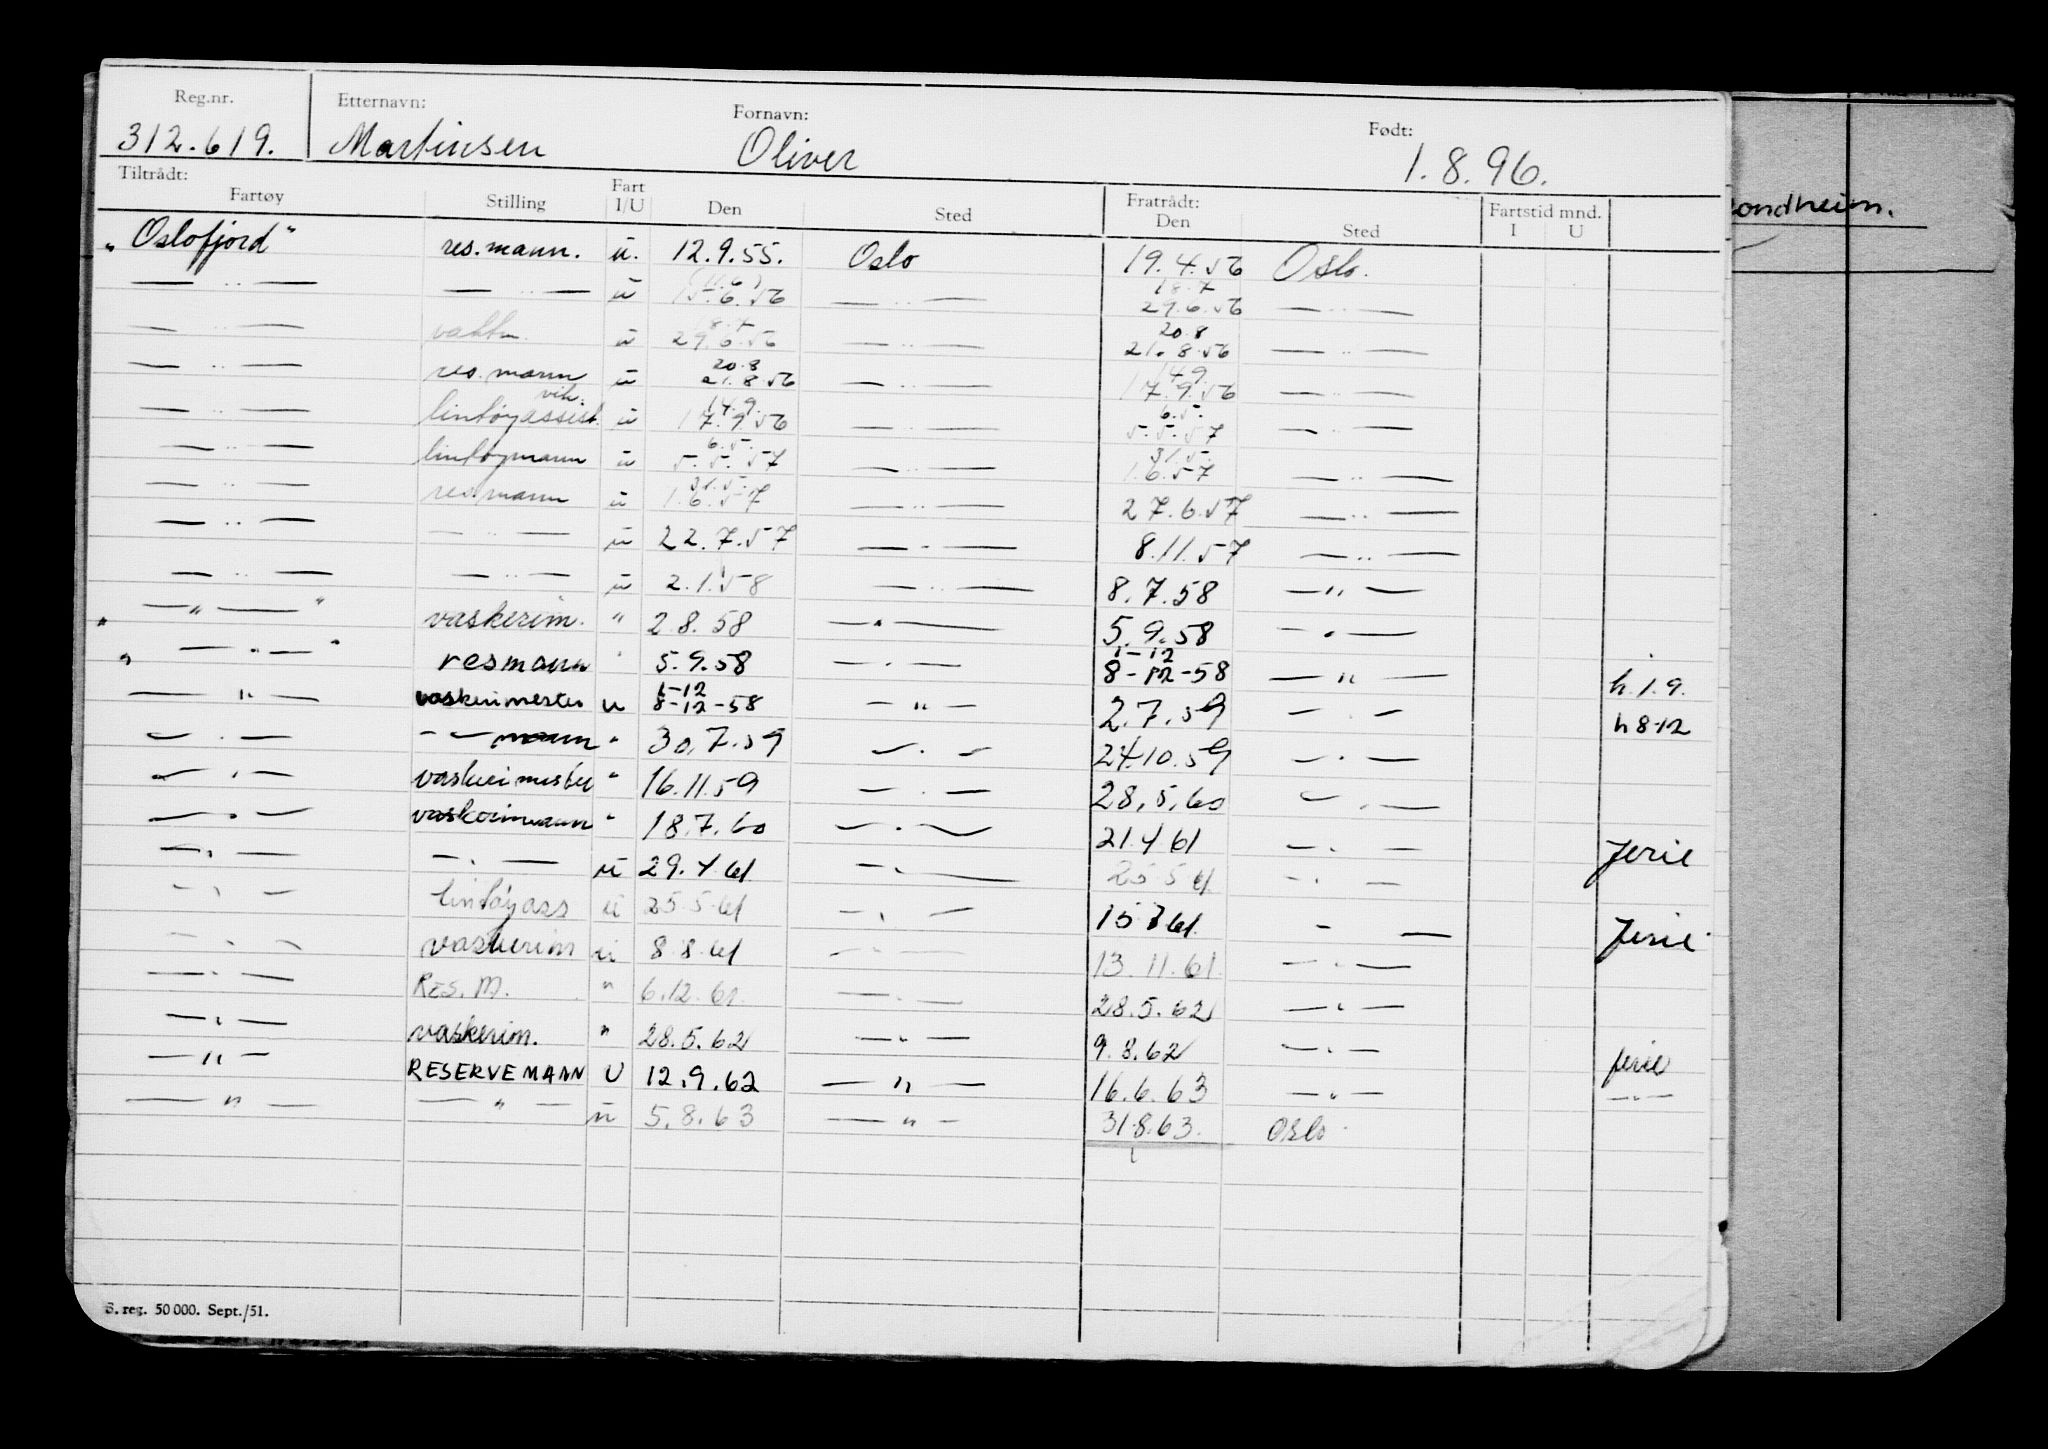 Reg.nr. Etternavn: Fornavn: Født:
312.619. Martinsen Oliver 1.8.96.
Tiltrådt: Fartøy Stilling Fart I/U Den Sted Fratrådt: Den Sted Fartstid mnd. I U
"Oslofjord" res.mann. ü. 12.9.55. Oslo 19.4.56 Oslo.
— " — — " — ü (11.6) 15.6.56 — " — 18.7 29.6.56 — " —
— " — ü 18.7 29.6.56 — " — 20.8 21.8.56 — " —
— " — res.mann ü 20.8 21.8.56 — " — 14.9. 17.9.56 — " —
— " — lintøyassist. vik. ü 14.9. 17.9.56 — " — 6.5. 5.5.57 — " —
— " — lintøymann ü 6.5. 5.5.57 — " — 31.5. 1.6.57 — " —
— " — res.mann ü 31.5. 1.6.57 — " — 27.6.57 — " —
— " — — " — ü 22.7.57 — " — 8.11.57 — " —
— " — — " — ü 2.1.58 — " — 8.7.58 — " —
" — " — " vaskerim. " 2.8.58 — " — 5.9.58 — " —
" — " — " resmann " 5.9.58 — " — 1-12 8-12-58 — " — h.1.9.
— " — vaskerimester u 1-12 8-12-58 — " — 2.7.59 — " — h 8-12
— " — — " — mann " 30.7.59 — " — 24.10.59 — " —
— " — vaskerimester " 16.11.59 — " — 28.5.60 — " —
— " — vaskerimann " 18.7.60 — " — 21.4.61 — " — ferie
— " — — " — ü 29.4.61 — " — 25.5.61 — " —
— " — lintøyass ü 25.5.61 — " — 15.7.61. — " — ferie
— " — vaskerim ü 8.8.61 — " — 13.11.61. — " —
— " — Res. M. " 6.12.61. — " — 28.5.62 — " —
— " — vaskerim. " 28.5.62 — " — 9.8.62 — " — ferie
— " — RESERVEMANN U 12.9.62 — " — 16.6.63 — " — — " —
— " — — " — ü 5.8.63 — " — 31.8.63. Oslo
S. reg. 50 000. Sept./51.
ondheim.